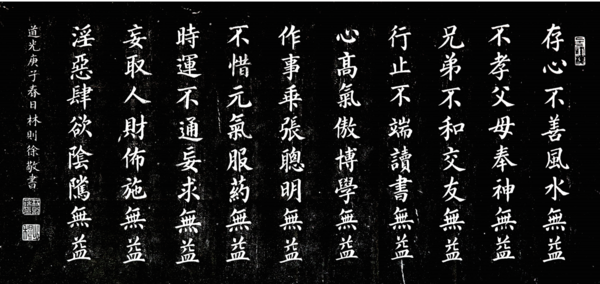 存心不善風水無益
不孝父母奉神無益
兄弟不和交友無益
行止不端讀書無益
心高氣傲博學無益
作事乘張聰明無益
不惜元氣服药無益
時運不通妄求無益
妄取人財佈施無益
淫惡肆欲陰隲無益
道光庚子春日林則徐敬書